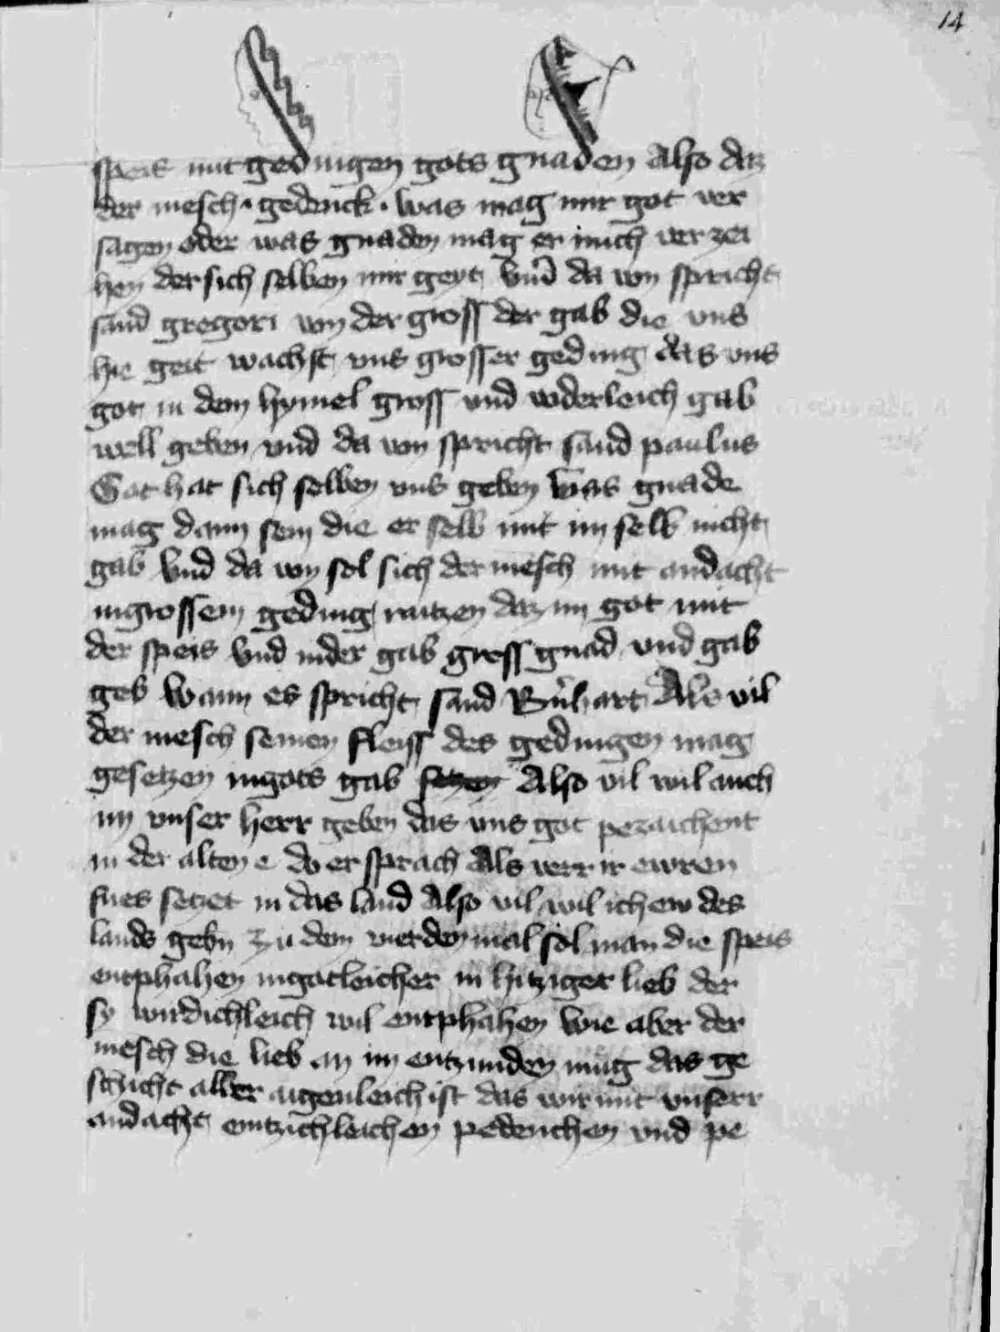 14
speis mit gedingen gots gnaden Also daz
der mesch · gedenck · was mag mir got ver
sagen oder was gnaden mag er mich verzei
hen der sich selben mir geyt Vnd da von spricht
sand gregori von der gross der gab die vns
hie geit wachst vns grosser geding das vns
got in dem hymel gross vnd wderleich gab
well geben vnd da von spricht sand paulus
Got hat sich selben vns geben Was gnade
mag dann sein die er selb mit im selb nicht
gab Vnd da von sol sich der mesch mit andacht
ingrossem geding raitzen daz im got mit
der speis Vnd inder gab gross gnad vnd gab
geb Wann es spricht sand Bernhart Als vil
der mesch seinen fleiss des gedingen mag
gesetzen ingots gab setzen Also vil wil auch
im vnser herr geben das vns got pezaichent
in der alten e do er sprach Als verr ir ewren
fues setzet in das land Also vil wil ich ew des
lands gebn Zu dem vierden mal sol man die speis
entphahen ingotleicher in hitziger lieb der
sy wirdichleich wil entphahen Wie aber der
mesch die lieb an im entzunden mug das ge
schicht aller aigenleich ist das wir mit vnserr
andacht emtzichleichen pedenchen vnd pe